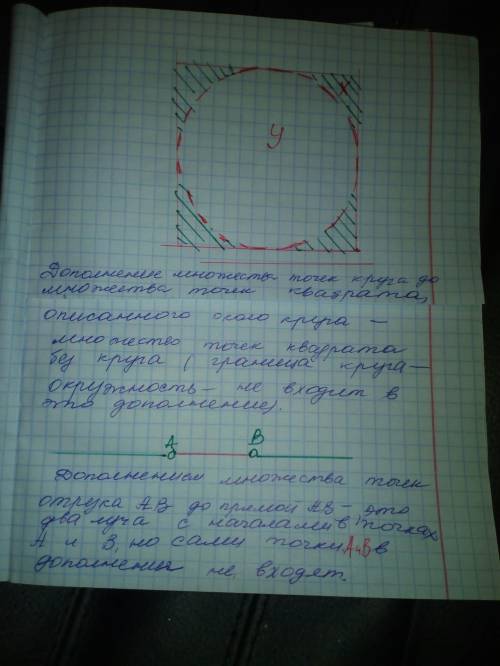 У
Дополнение множества точек круга до
множества точек квадрата,
описанного около круга —
множество точек квадрата
без круга (граница круга —
окружность — не входит в
это дополнение).
А В
Дополнением множества точек
отрезка АВ до прямой АВ — это
два луча с началами в точках
А и В, но сами точки А и В в
дополнение не входят.